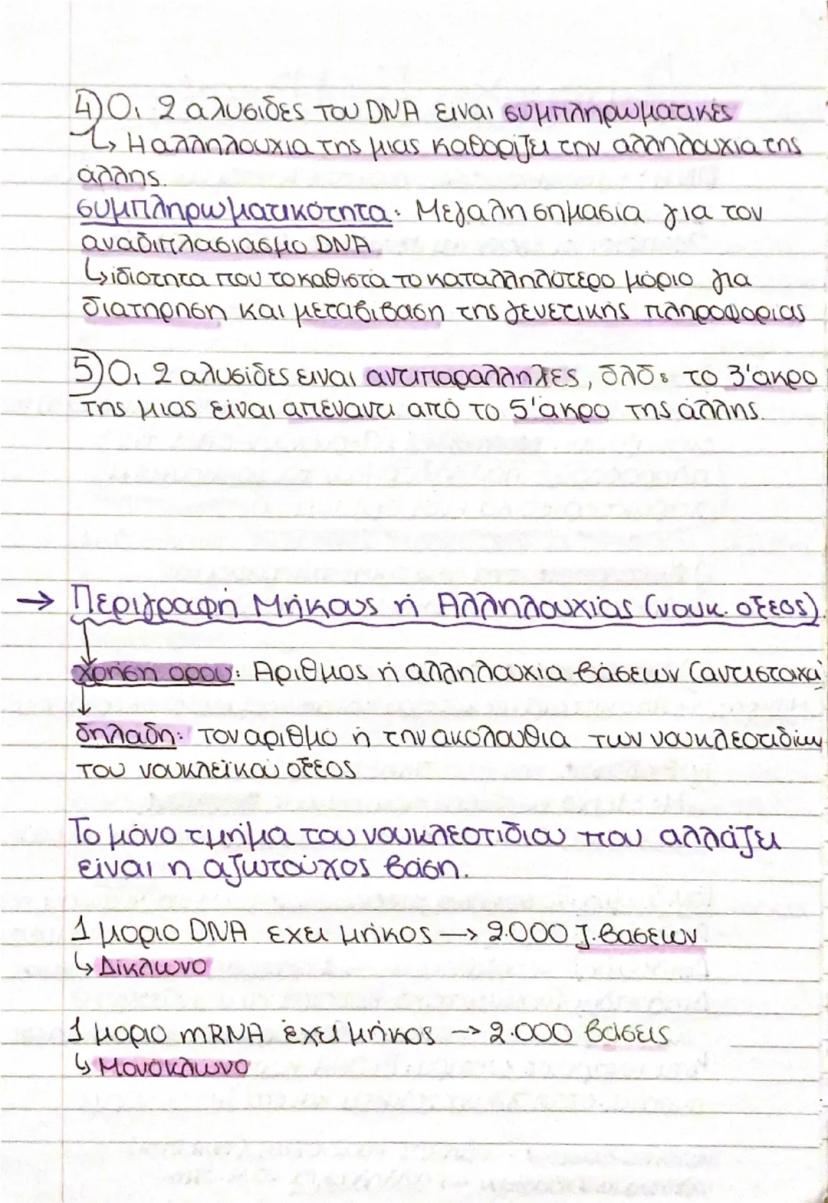 4) Οι 2 αλυσίδες του DNA είναι συμπληρωματικές
↳ Η αλληλουχία της μιας καθορίζει την αλληλουχία της
άλλης.
συμπληρωματικότητα: Μεγάλη σημασία για τον
αναδιπλασιασμό DNA.
↳ ιδιότητα που το καθιστά το καταλληλότερο μόριο για
διατήρηση και μεταβίβαση της γενετικής πληροφορίας
5) Οι 2 αλυσίδες είναι αντιπαράλληλες, δλδ: το 3' άκρο
της μιας είναι απέναντι από το 5' άκρο της άλλης.
→ Περιγραφή Μήκους ή Αλληλουχίας (νουκ. οξέος)
χρήση όρου: Αριθμός ή αλληλουχία βάσεων (αντίστοιχα)
δηλαδή: τον αριθμό ή την ακολουθία των νουκλεοτιδίων
του νουκλεϊκού οξέος
Το μόνο τμήμα του νουκλεοτιδίου που αλλάζει
είναι η αζωτούχος βάση.
1 μόριο DNA έχει μήκος → 2.000 ζ.βάσεων
↳ Δίκλωνο
1 μόριο mRNA έχει μήκος → 2.000 βάσεις
↳ Μονόκλωνο